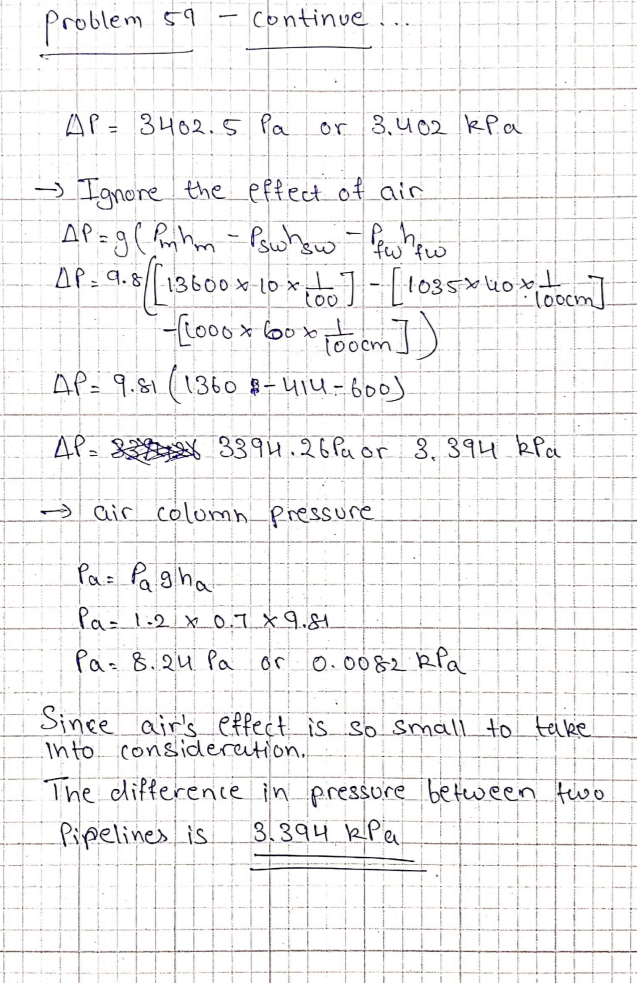 Problem 59 - continue...
ΔP = 3402.5 Pa or 3.402 kPa
→ Ignore the effect of air
ΔP = g(Pmhm - Pswhsw - Pfwhfw
ΔP = 9.8([13600 x 10 x 1/100] - [1035 x 40 x 1/100cm]
-[1000 x 60 x 1/100cm])
ΔP = 9.81 (1360 - 414 - 600)
ΔP = 3394.26Pa or 3.394 kPa
→ air column pressure
Pa = Pagha
Pa = 1.2 x 0.7 x 9.81
Pa = 8.24 Pa or 0.0082 kPa
Since air's effect is so small to take
into consideration.
The difference in pressure between two
Pipelines is 3.394 kPa